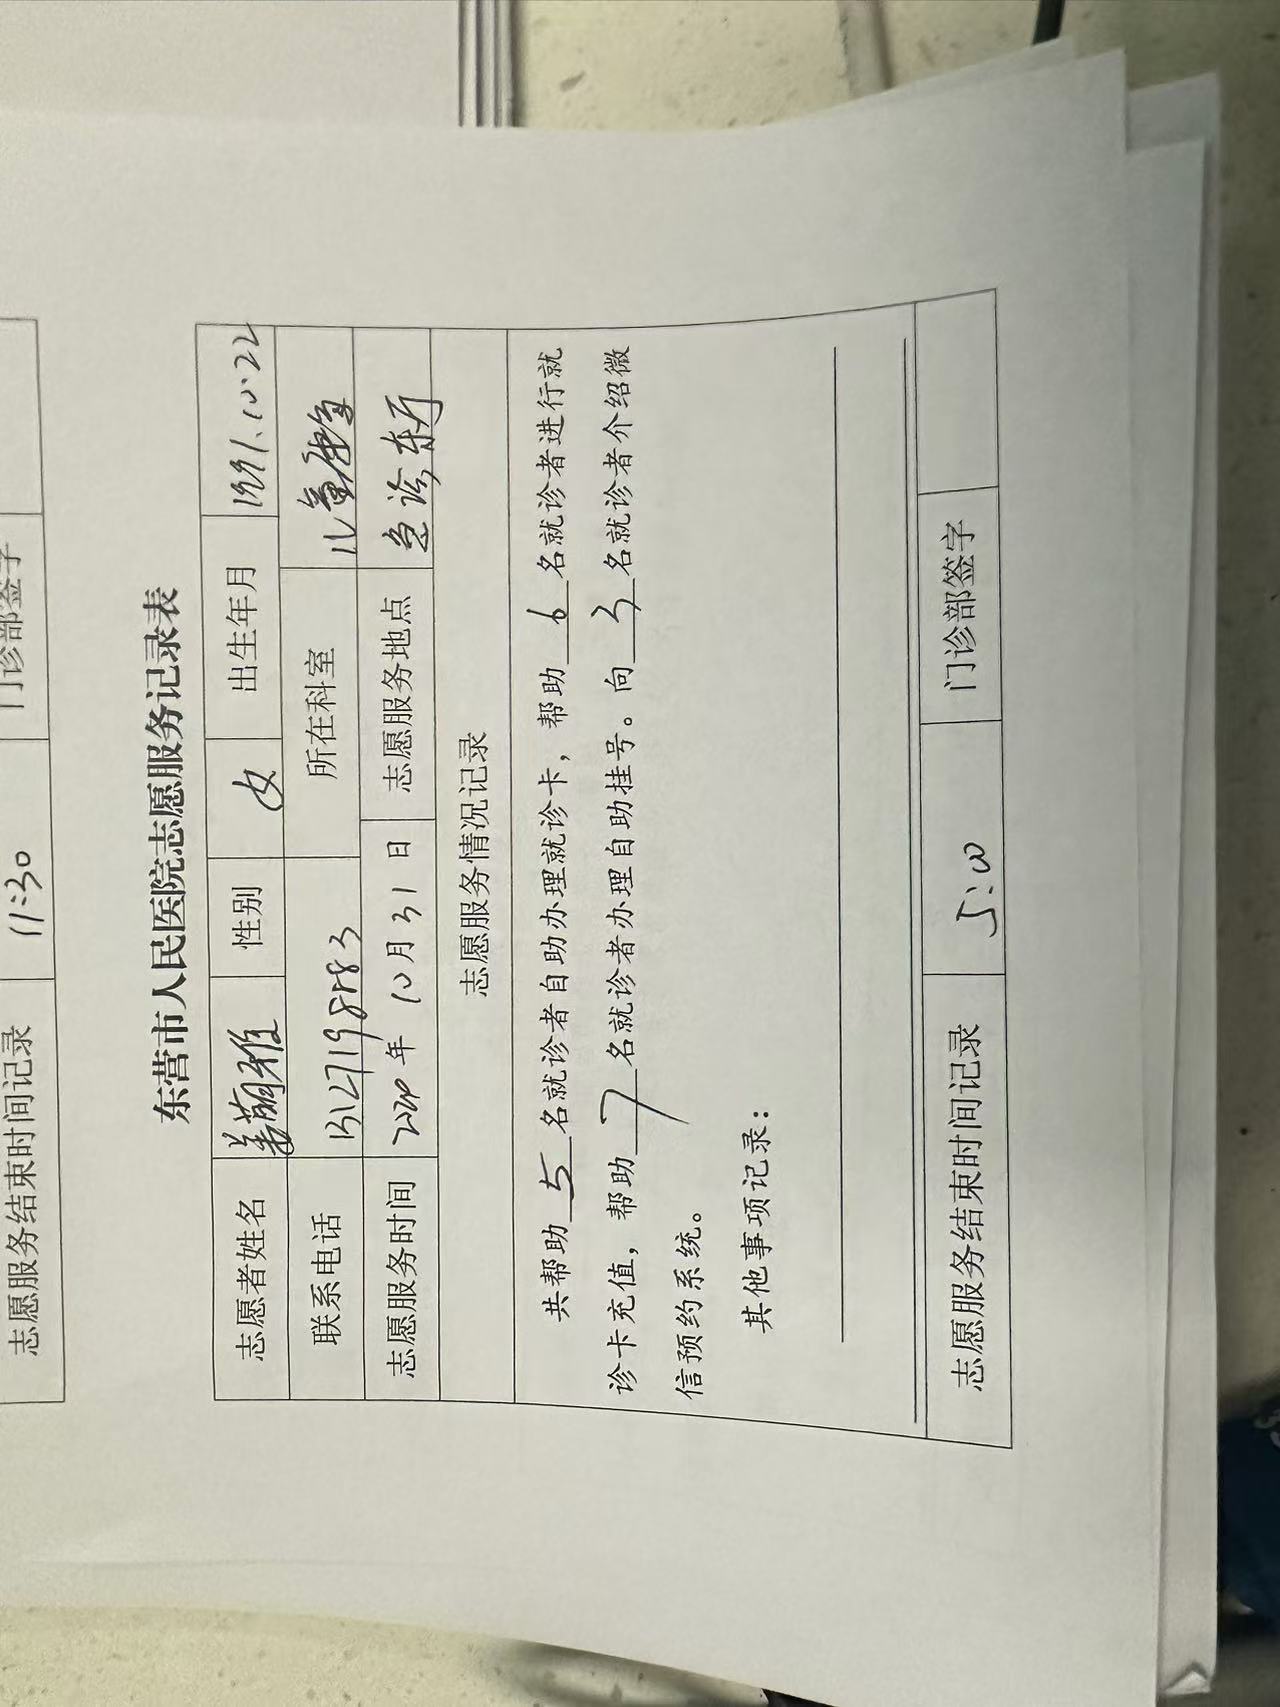 志愿服务结束时间记录 11:30 门诊部签字
东营市人民医院志愿服务记录表
志愿者姓名 姜萌雅 性别 女 出生年月 1991.10.22
联系电话 所在科室 儿童康复
志愿服务时间 2020年 10月31日 志愿服务地点 急诊东厅
志愿服务情况记录
共帮助5名就诊者自助办理就诊卡，帮助6名就诊者进行就
诊卡充值，帮助7名就诊者办理自助挂号。向3名就诊者介绍微
信预约系统。
其他事项记录：
志愿服务结束时间记录 5:00 门诊部签字